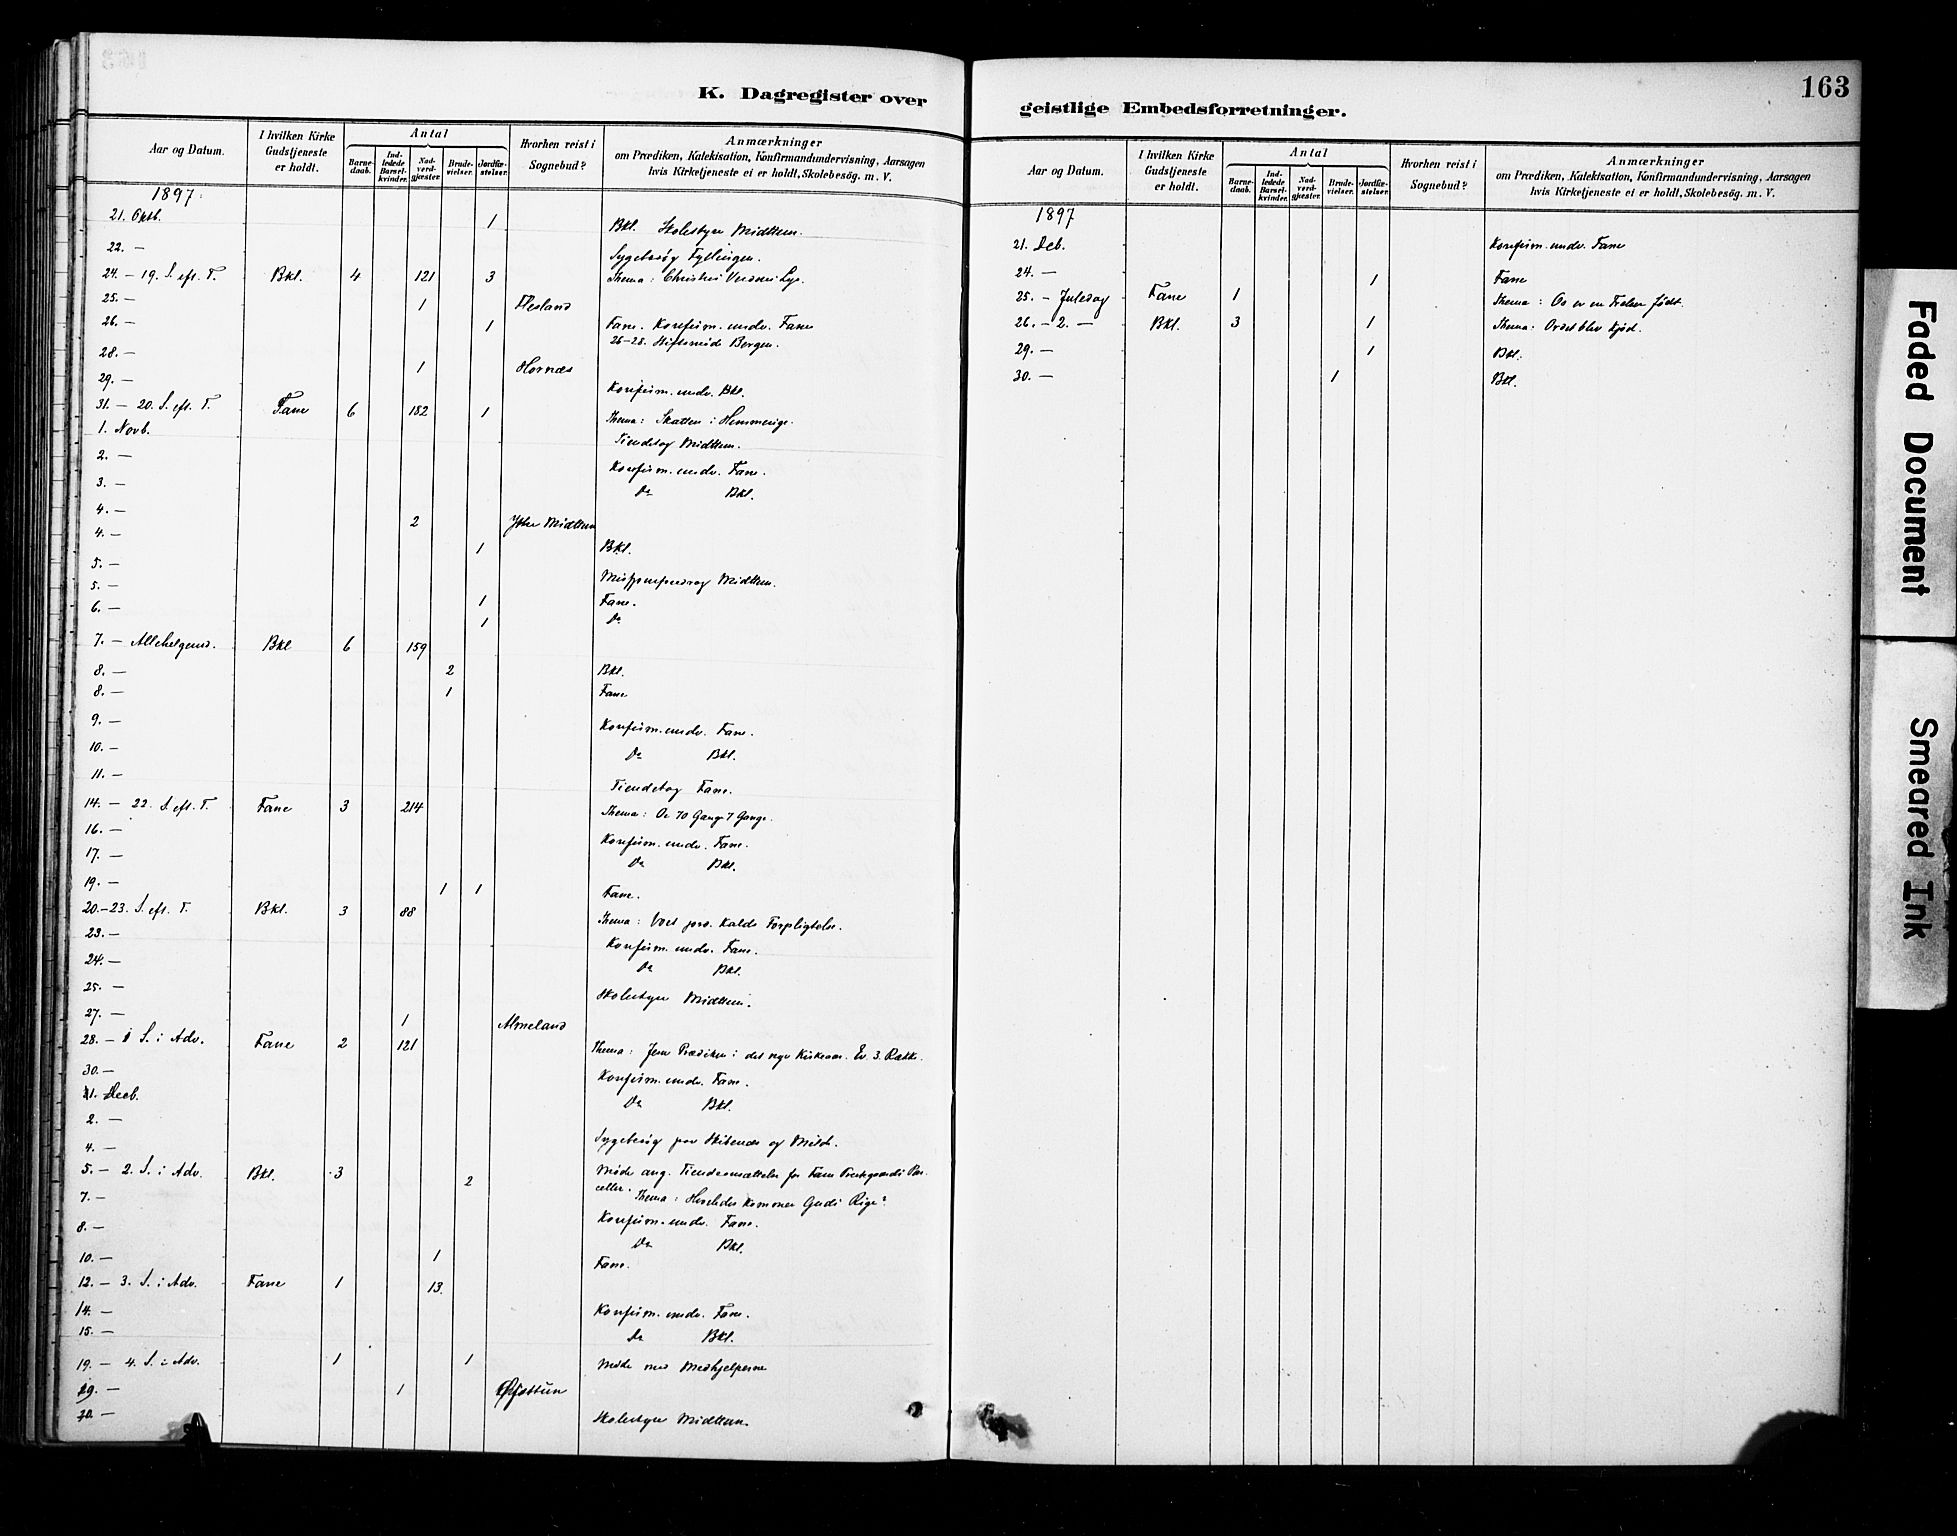 163
K. Dagregister over geistlige Embedsforretninger.
Aar og Datum. I hvilken Kirke Gudstjeneste er holdt. Antal Barnedaab. Indledede Barselkvinder. Nadverdgjæster. Brudevielser. Jordfæstelser. Hvorhen reist i Sognebud? Anmærkninger om Prædiken, Katekisation, Konfirmandundervisning, Aarsagen hvis Kirketjeneste ei er holdt, Skolebesög. m. V.
1897.
21. Oktb. 1 Bkl. Skolestyre Midttun.
22. — Sygebesøg Fyllingen.
24. — 19. S. eft. T. Bkl. 4 121 3 Thema: Christus Verdens Lys.
25. — 1 Flesland
26. — 1 Fane. Konfirm. underv. Fane
26-28. Stiftsmøde Bergen.
28. — 1 Hornæs
29. — Konfirm. underv. Bkl.
31. — 20. S. eft. T. Fane 6 182 1 Thema: Skatten i Himmerige.
1. Novb. Tiendetog Midttun.
2. — Konfirm. underv. Fane.
3. — Do Bkl.
4. — 2 Ytre Midttun
4. — 1 Bkl.
5. —
5. — Midttun.
6. — 1 Fane.
1 Do
7. — Allehelgensd. Bkl 6 159
8. — 2 Bkl.
8. — 1 Fane
9. — Konfirm. underv. Fane.
10. — Do Bkl.
11. — Tiendetog Fane.
14. — 22. S. eft. T. Fane 3 214 Thema: De 70 Gange 7 Gange.
16. — Konfirm. underv. Fane.
17. — Do Bkl.
19. — 1 1 Fane.
20. — 23. S. eft. T. Bkl. 3 88 Thema: Vort Kalds Forpligtelse.
23. — Konfirm. underv. Fane.
24. — Do Bkl.
25. — Skolestyre Midttun.
27. — 1 Almeland
28. — 1 S. i Adv. Fane 2 121 Thema: Jesu Prædiken i det nye Kirkeaar. Ev. 3. Række.
30. — Konfirm. underv. Fane.
1. Decb. Do Bkl.
2. —
4. — Sygebesøg paa Skibenæs og Milde.
5. — 2. S. i Adv. Bkl. 3 2 Møde ang. Tiendeomsættelse for Fane Prestegaards Parceller. Thema: Hvorledes kommer Guds Rige?
7. — Konfirm. underv. Fane.
8. — Do Bkl.
10. — 1 Fane.
12. — 3. S. i Adv. Fane 1 13.
14. — Konfirm. underv. Fane.
15. — Do Bkl.
19. — 4. S. i Adv. 1 1 Møde med Medhjelperne
29. — 1 Øvsttun
30. — Skolestyre Midttun.
Aar og Datum. I hvilken Kirke Gudstjeneste er holdt. Antal Barnedaab. Indledede Barselkvinder. Nadverdgjæster. Brudevielser. Jordfæstelser. Hvorhen reist i Sognebud? Anmærkninger om Prædiken, Katekisation, Konfirmandundervisning, Aarsagen hvis Kirketjeneste ei er holdt, Skolebesög. m. V.
1897
21. Deb. Konfirm. underv. Fane
24. — 1 Fane
25. — Juledag Fane 1 Thema: Os er en Frelser født.
26. — 2. — Bkl. 3 1 Thema: Ordet blev Kjød.
29. — 1 Bkl.
30. — 1 Bkl.
Faded Document
Smeared Ink